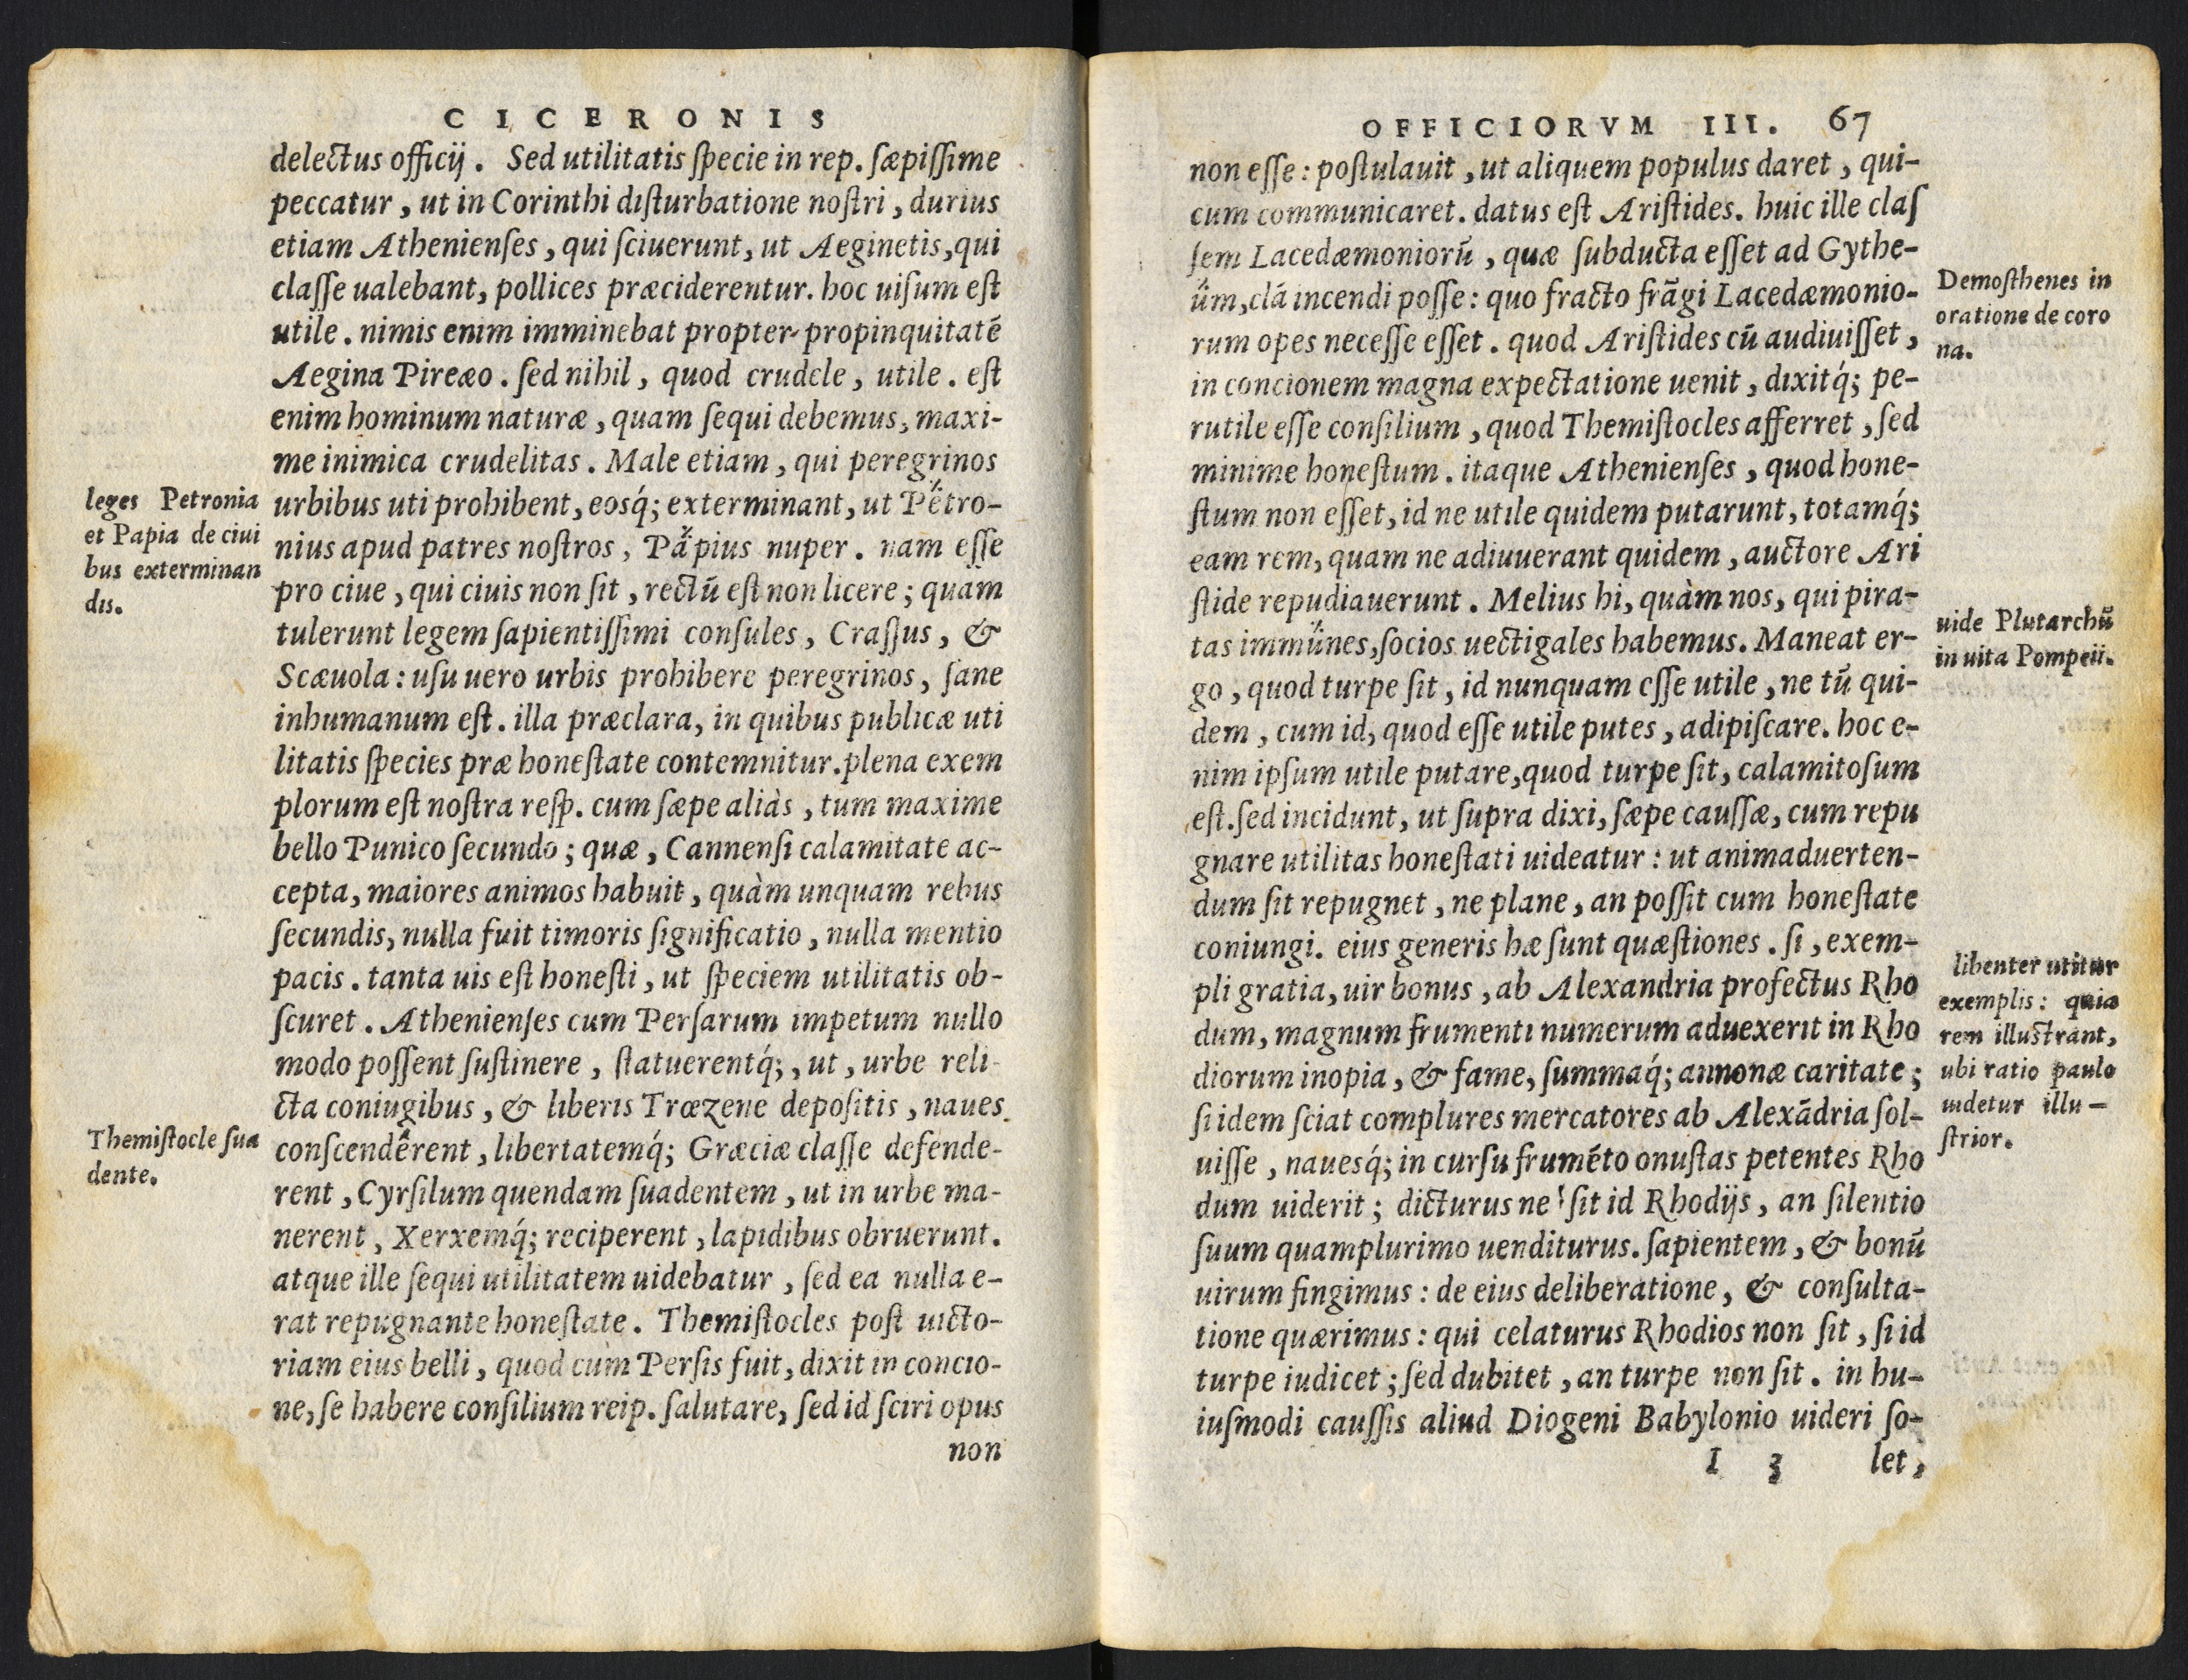 CICERONIS
delectus officij. Sed utilitatis ſpecie in rep. ſæpiſſime
peccatur, ut in Corinthi diſturbatione noſtri, durius
etiam Athenienſes, qui ſciuerunt, ut Aeginetis, qui
claſſe ualebant, pollices præciderentur. hoc uiſum eſt
utile. nimis enim imminebat propter propinquitatē
Aegina Piræo. ſed nihil, quod crudele, utile. eſt
enim hominum naturæ, quam ſequi debemus, maxi-
me inimica crudelitas. Male etiam, qui peregrinos
leges Petronia
et Papia de ciui
bus exterminan
dis.
urbibus uti prohibent, eosq́; exterminant, ut Petro-
nius apud patres noſtros, Papius nuper. nam eſſe
pro ciue, qui ciuis non ſit, rectū eſt non licere; quam
tulerunt legem ſapientiſſimi conſules, Craſſus, &
Scæuola: uſu uero urbis prohibere peregrinos, ſane
inhumanum eſt. illa præclara, in quibus publicæ uti
litatis ſpecies præ honeſtate contemnitur. plena exem
plorum eſt noſtra reſp. cum ſæpe aliàs, tum maxime
bello Punico ſecundo; quæ, Cannenſi calamitate ac-
cepta, maiores animos habuit, quàm unquam rebus
ſecundis, nulla fuit timoris ſignificatio, nulla mentio
pacis. tanta uis eſt honeſti, ut ſpeciem utilitatis ob-
ſcuret. Athenienſes cum Perſarum impetum nullo
modo poſſent ſuſtinere, ſtatuerentq́;, ut, urbe reli
cta coniugibus, & liberis Trœzene depoſitis, naues
Themiſtocle ſua
dente.
conſcenderent, libertatemq́; Græciæ claſſe defende-
rent, Cyrſilum quendam ſuadentem, ut in urbe ma-
nerent, Xerxemq́; reciperent, lapidibus obruerunt.
atque ille ſequi utilitatem uidebatur, ſed ea nulla e-
rat repugnante honeſtate. Themiſtocles poſt uicto-
riam eius belli, quod cum Perſis fuit, dixit in concio-
ne, ſe habere conſilium reip. ſalutare, ſed id ſciri opus
non
OFFICIORVM III. 67
non eſſe: poſtulauit, ut aliquem populus daret, qui-
cum communicaret. datus eſt Ariſtides. huic ille claſ
ſem Lacedæmoniorū, quæ ſubducta eſſet ad Gythe-
ūm, clā incendi poſſe: quo fracto frāgi Lacedæmonio-
rum opes neceſſe eſſet. quod Ariſtides cū audiuiſſet,
Demoſthenes in
oratione de coro
na.
in concionem magna expectatione uenit, dixitq́; pe-
rutile eſſe conſilium, quod Themiſtocles afferret, ſed
minime honeſtum. itaque Athenienſes, quod hone-
ſtum non eſſet, id ne utile quidem putarunt, totamq́;
eam rem, quam ne adiuuerant quidem, auctore Ari
ſtide repudiauerunt. Melius hi, quàm nos, qui pira-
tas immunes, ſocios uectigales habemus. Maneat er-
uide Plutarchū
in uita Pompeii.
go, quod turpe ſit, id nunquam eſſe utile, ne tū qui-
dem, cum id, quod eſſe utile putes, adipiſcare. hoc e-
nim ipſum utile putare, quod turpe ſit, calamitoſum
eſt. ſed incidunt, ut ſupra dixi, ſæpe cauſſæ, cum repu
gnare utilitas honeſtati uideatur: ut animaduerten-
dum ſit repugnet, ne plane, an poſſit cum honeſtate
coniungi. eius generis hæ ſunt quæſtiones. ſi, exem-
pli gratia, uir bonus, ab Alexandria profectus Rho
dum, magnum frumenti numerum aduexerit in Rho
diorum inopia, & fame, ſummaq́; annonæ caritate;
ſi idem ſciat complures mercatores ab Alexādria ſol-
libenter utitur
exemplis: quia
rem illuſtrant,
ubi ratio paulo
uidetur illu-
ſtrior.
uiſſe, nauesq́; in curſu frumēto onuſtas petentes Rho
dum uiderit; dicturus ne ſit id Rhodijs, an ſilentio
ſuum quamplurimo uenditurus. ſapientem, & bonū
uirum fingimus: de eius deliberatione, & conſulta-
tione quærimus: qui celaturus Rhodios non ſit, ſi id
turpe iudicet; ſed dubitet, an turpe non ſit. in hu-
iuſmodi cauſſis aliud Diogeni Babylonio uideri ſo-
I 3 let,